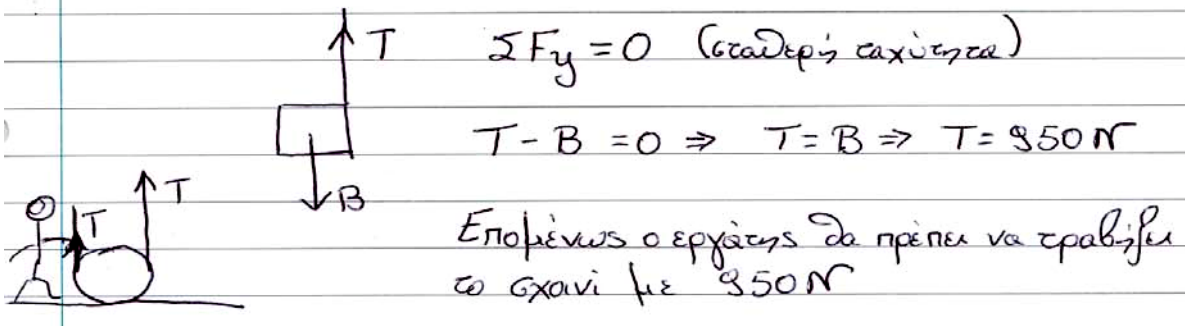 T
ΣFy = 0 (σταθερή ταχύτητα)
T - B = 0 ⇒ T = B ⇒ T = 950 N
B
T
T
Επομένως ο εργάτης θα πρέπει να τραβήξει
το σχοινί με 950 N